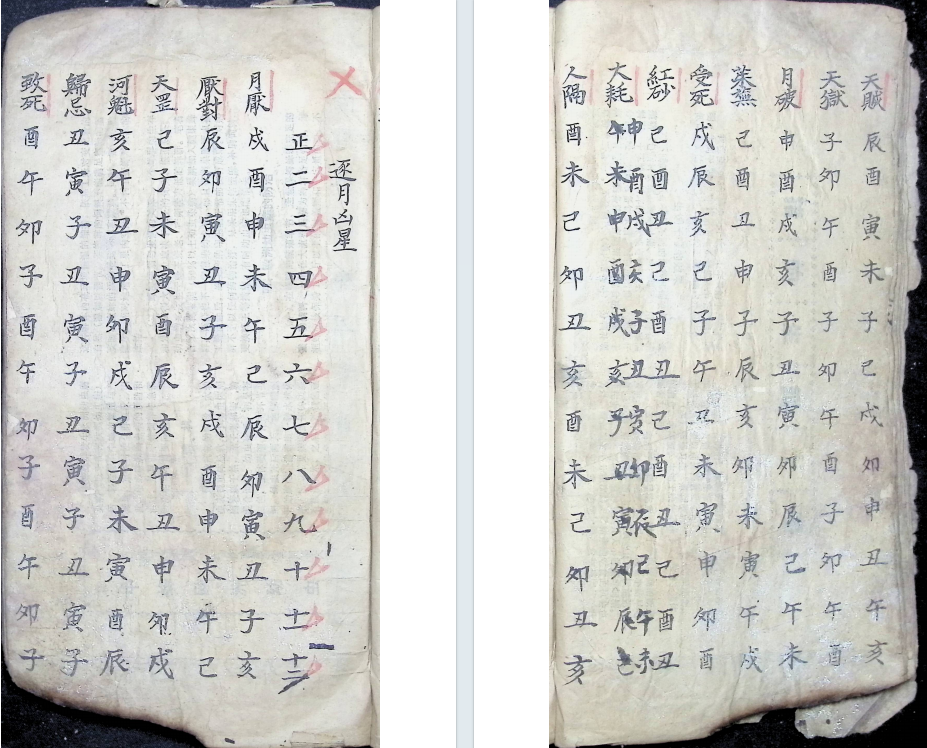 逐月凶星
正二三四五六七八九十十一十二
月厭戌酉申未午己辰卯寅丑子亥
厭對辰卯寅丑子亥戌酉申未午己
天罡己子未寅酉辰亥午丑申卯戌
河魁亥午丑申卯戌己子未寅酉辰
歸忌丑寅子丑寅子丑寅子丑寅子
致死酉午卯子酉午卯子酉午卯子
天賊辰酉寅未子己戌卯申丑午亥
天獄子卯午酉子卯午酉子卯午酉
月破申酉戌亥子丑寅卯辰己午未
萊蕪己酉丑申子辰亥卯未寅午戌
受死戌辰亥己子午丑未寅申卯酉
紅砂己酉丑己酉丑己酉丑己酉丑
申酉戌亥子丑寅卯辰己午未
大耗午未申酉戌亥子丑寅卯辰己
人隔酉未己卯丑亥酉未己卯丑亥